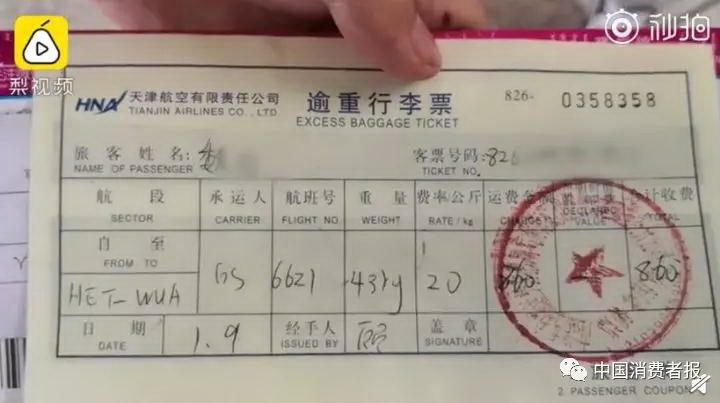 梨视频
秒拍
HNA 天津航空有限责任公司
TIANJIN AIRLINES CO., LTD
逾重行李票
EXCESS BAGGAGE TICKET
826- 0358358
旅客姓名:
NAME OF PASSENGER
客票号码: 826
TICKET NO.
航段 承运人 航班号 重量 费率公斤 运费金额 声明价值 合计收费
SECTOR CARRIER FLIGHT NO. WEIGHT RATE / kg CHARGE DECLARED VALUE TOTAL
自 至
FROM TO
HET-WUA GS 6621 43kg 20 860 860
日期 1.9 经手人 盖章
DATE ISSUED BY SIGNATURE
中国消费者报
2. PASSENGER COUPON